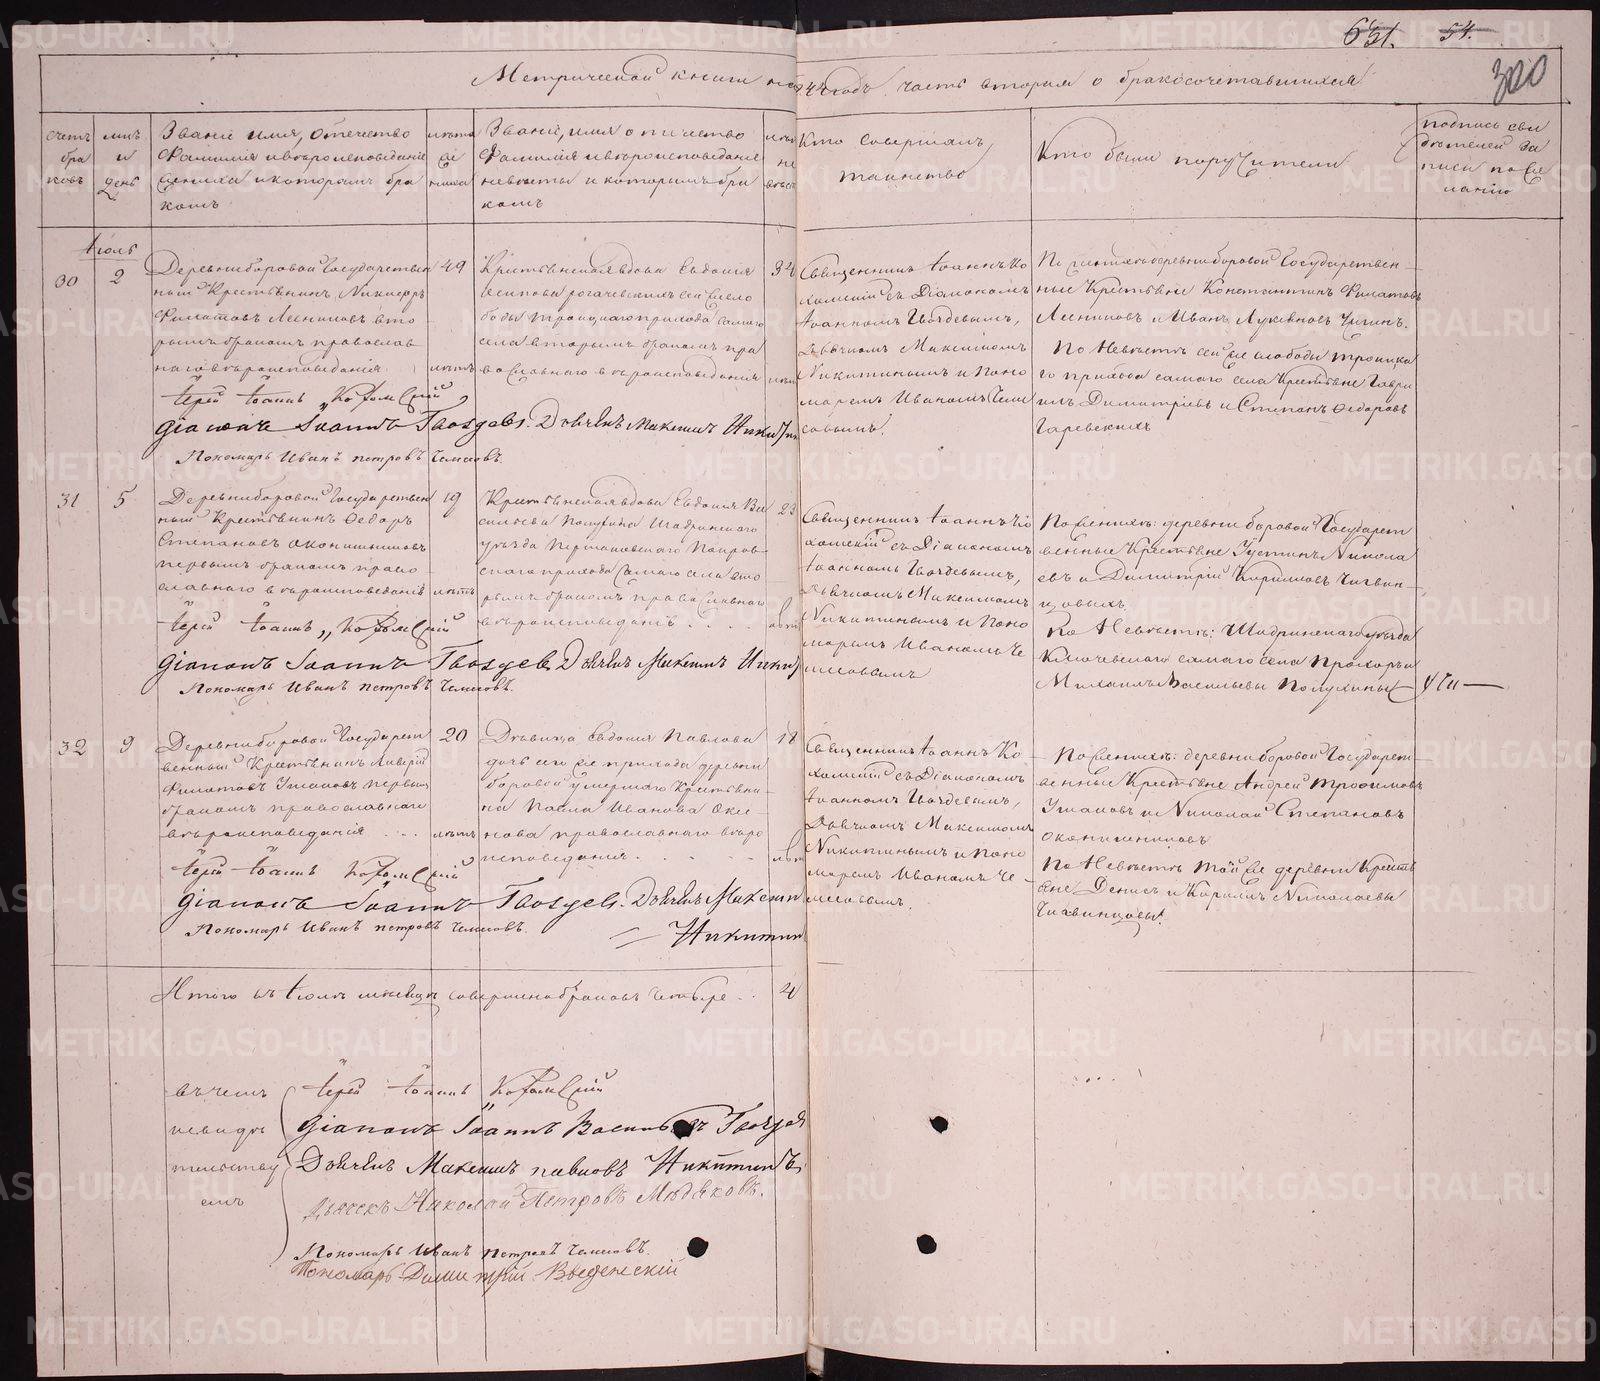 631. 54.
300
Метрической книги на 184 годъ часть вторая о бракосочетавшихся
счетъ браковъ
мцъ и день
Званіе имя, отечество
фамилія и вѣроисповѣданіе
жениха и которымъ бра
комъ
лѣта же ниха
Званіе, имя отечество
фамилія и вѣроисповѣданіе
невѣсты и которымъ бра
комъ
лѣта не вѣсты
Кто совершалъ
таинство
Кто были поручители
подпись сви
дѣтелей за
писи по же
ланію
Іюль
30
2
Деревни боровой Государствен
ный Крестьянинъ Никифоръ
Филатовъ вто
рымъ бракомъ православ
наго вѣроисповѣданія
49
лѣтъ
Крестьянская вдова Евдокія
сей же сло
боды Троицкаго прихода самаго
села вторымъ бракомъ пра
вославнаго вѣроисповѣданія
34
Священникъ Іоаннъ Ко
съ Діакономъ
Іоанномъ Гвоздевымъ,
Дьячкомъ Максимомъ
Никитинымъ и Поно
маремъ Иваномъ Чеми
совымъ.
деревни боровой Государствен
ные Крестьяне Константинъ Филатовъ
и Иванъ Лукіяновъ
По Невѣстѣ сей же слободы троицка
го прихода самаго села Крестьяне Гаври
илъ Димитріевъ и Степанъ Федоровъ
Іерей Іоаннъ
Діаконъ Іоаннъ Гвоздевъ. Дьячекъ Максимъ Никитинъ
Пономарь Иванъ Петровъ Чемисовъ.
31
5
Деревни боровой Государствен
ный Крестьянинъ Федоръ
Степановъ Оконишниковъ
первымъ бракомъ право
славнаго вѣроисповѣданія
19
лѣтъ
Крестьянская вдова Евдокія Ва
сильева Полухина Шадринскаго
уѣзда Покров
скаго прихода самаго села вто
рымъ бракомъ православнаго
вѣроисповѣданія . . . .
23
Священникъ Іоаннъ Ко
съ Діакономъ
Іоанномъ Гвоздевымъ,
Дьячкомъ Максимомъ
Никитинымъ и Поно
маремъ Иваномъ Че
мисовымъ
По Женихѣ: деревни боровой Государст
венные Крестьяне Устинъ Никола
евъ и Димитрій Кириловъ Чигвин
цовыхъ
По Невѣстѣ: Шадринскаго уѣзда
самаго села Прохоръ и
Михаилъ Васильевы Полухины
Іерей Іоаннъ
Діаконъ Іоаннъ Гвоздевъ Дьячекъ Максимъ Никитинъ
Пономарь Иванъ Петровъ Чемисовъ.
32
9
Деревни боровой Государст
венный Крестьянинъ Ливерій
Филатовъ Ушаковъ первымъ
бракомъ православнаго
вѣроисповѣданія . . .
20
лѣтъ
Дѣвица Евдокія Павлова
дочь сего же прихода деревни
боровой умершаго Крестьяни
на Павла Иванова
православнаго вѣро
исповѣданія. . . . .
18
Священникъ Іоаннъ Ко
съ Діакономъ
Іоанномъ Гвоздевымъ,
Дьячкомъ Максимомъ
Никитинымъ и Поно
маремъ Иваномъ Че
мисовымъ.
По Женихѣ: деревни боровой Государст
венные Крестьяне Андрей Трофимовъ
Ушаковъ и Николай Степановъ
Оконишниковъ
По Невѣстѣ той же деревни Кресть
яне Денисъ и Кирилъ Николаевы
Чигвинцовы.
Іерей Іоаннъ
Діаконъ Іоаннъ Гвоздевъ. Дьячекъ Максимъ
Пономарь Иванъ Петровъ Чемисовъ.
Никитинъ
Итого въ Іюлѣ мѣсяцѣ совершено браковъ четыре . . 4
въ чемъ
и свидѣ
тельству
емъ
Іерей Іоаннъ
Діаконъ Іоаннъ Гвоздев
Дьячекъ Максимъ Павловъ Никитинъ,
Дьячекъ Николай Петровъ Мѣдяковъ.
Пономарь Иванъ Петровъ Чемисовъ.
Пономарь Димитрій Введенскій
METRIKI.GASO-URAL.RU